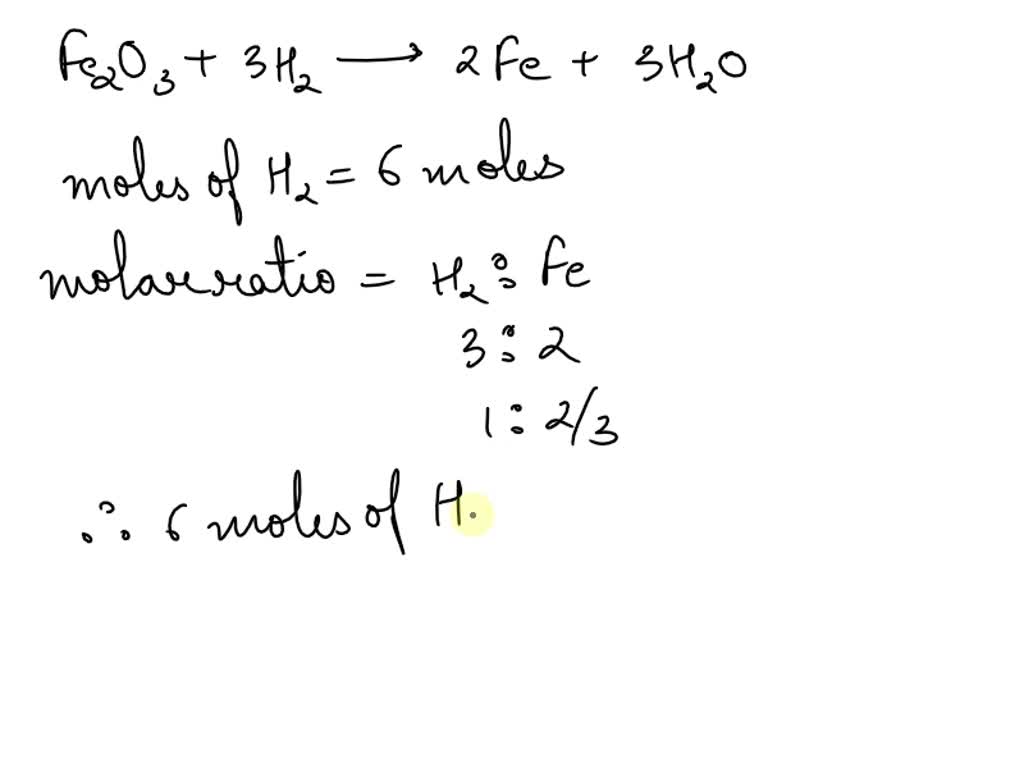 Fe₂O₃ + 3H₂ ⟶ 2Fe + 3H₂O
moles of H₂ = 6 moles
molar ratio = H₂ : Fe
3 : 2
1 : 2/3
∴ 6 moles of H